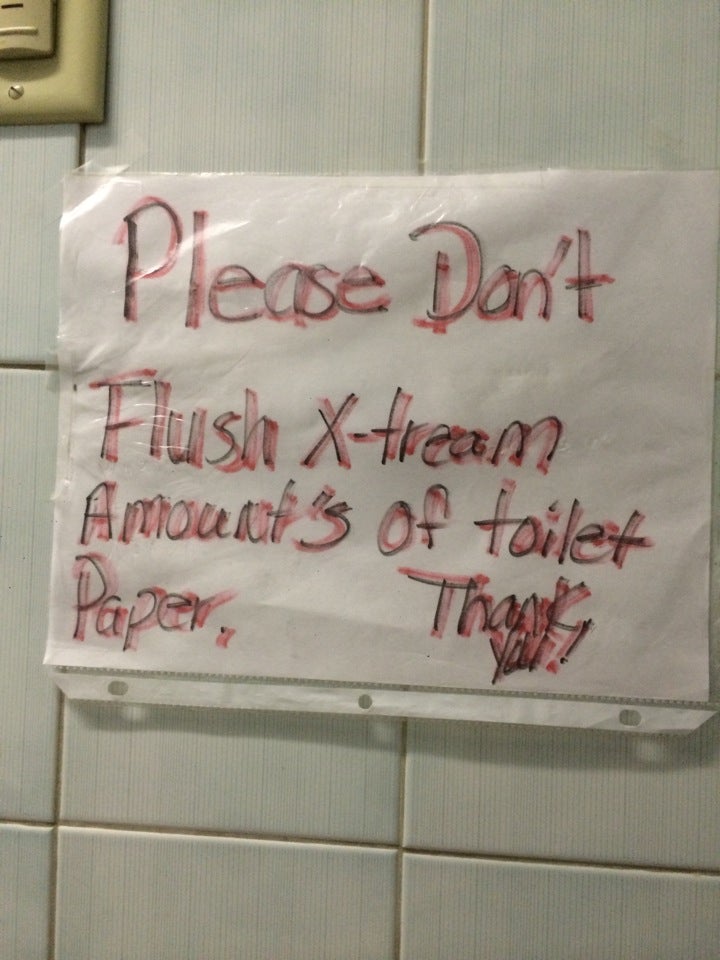 Please Don't
Flush X-tream
Amount's of toilet
Paper. Thank
you!!